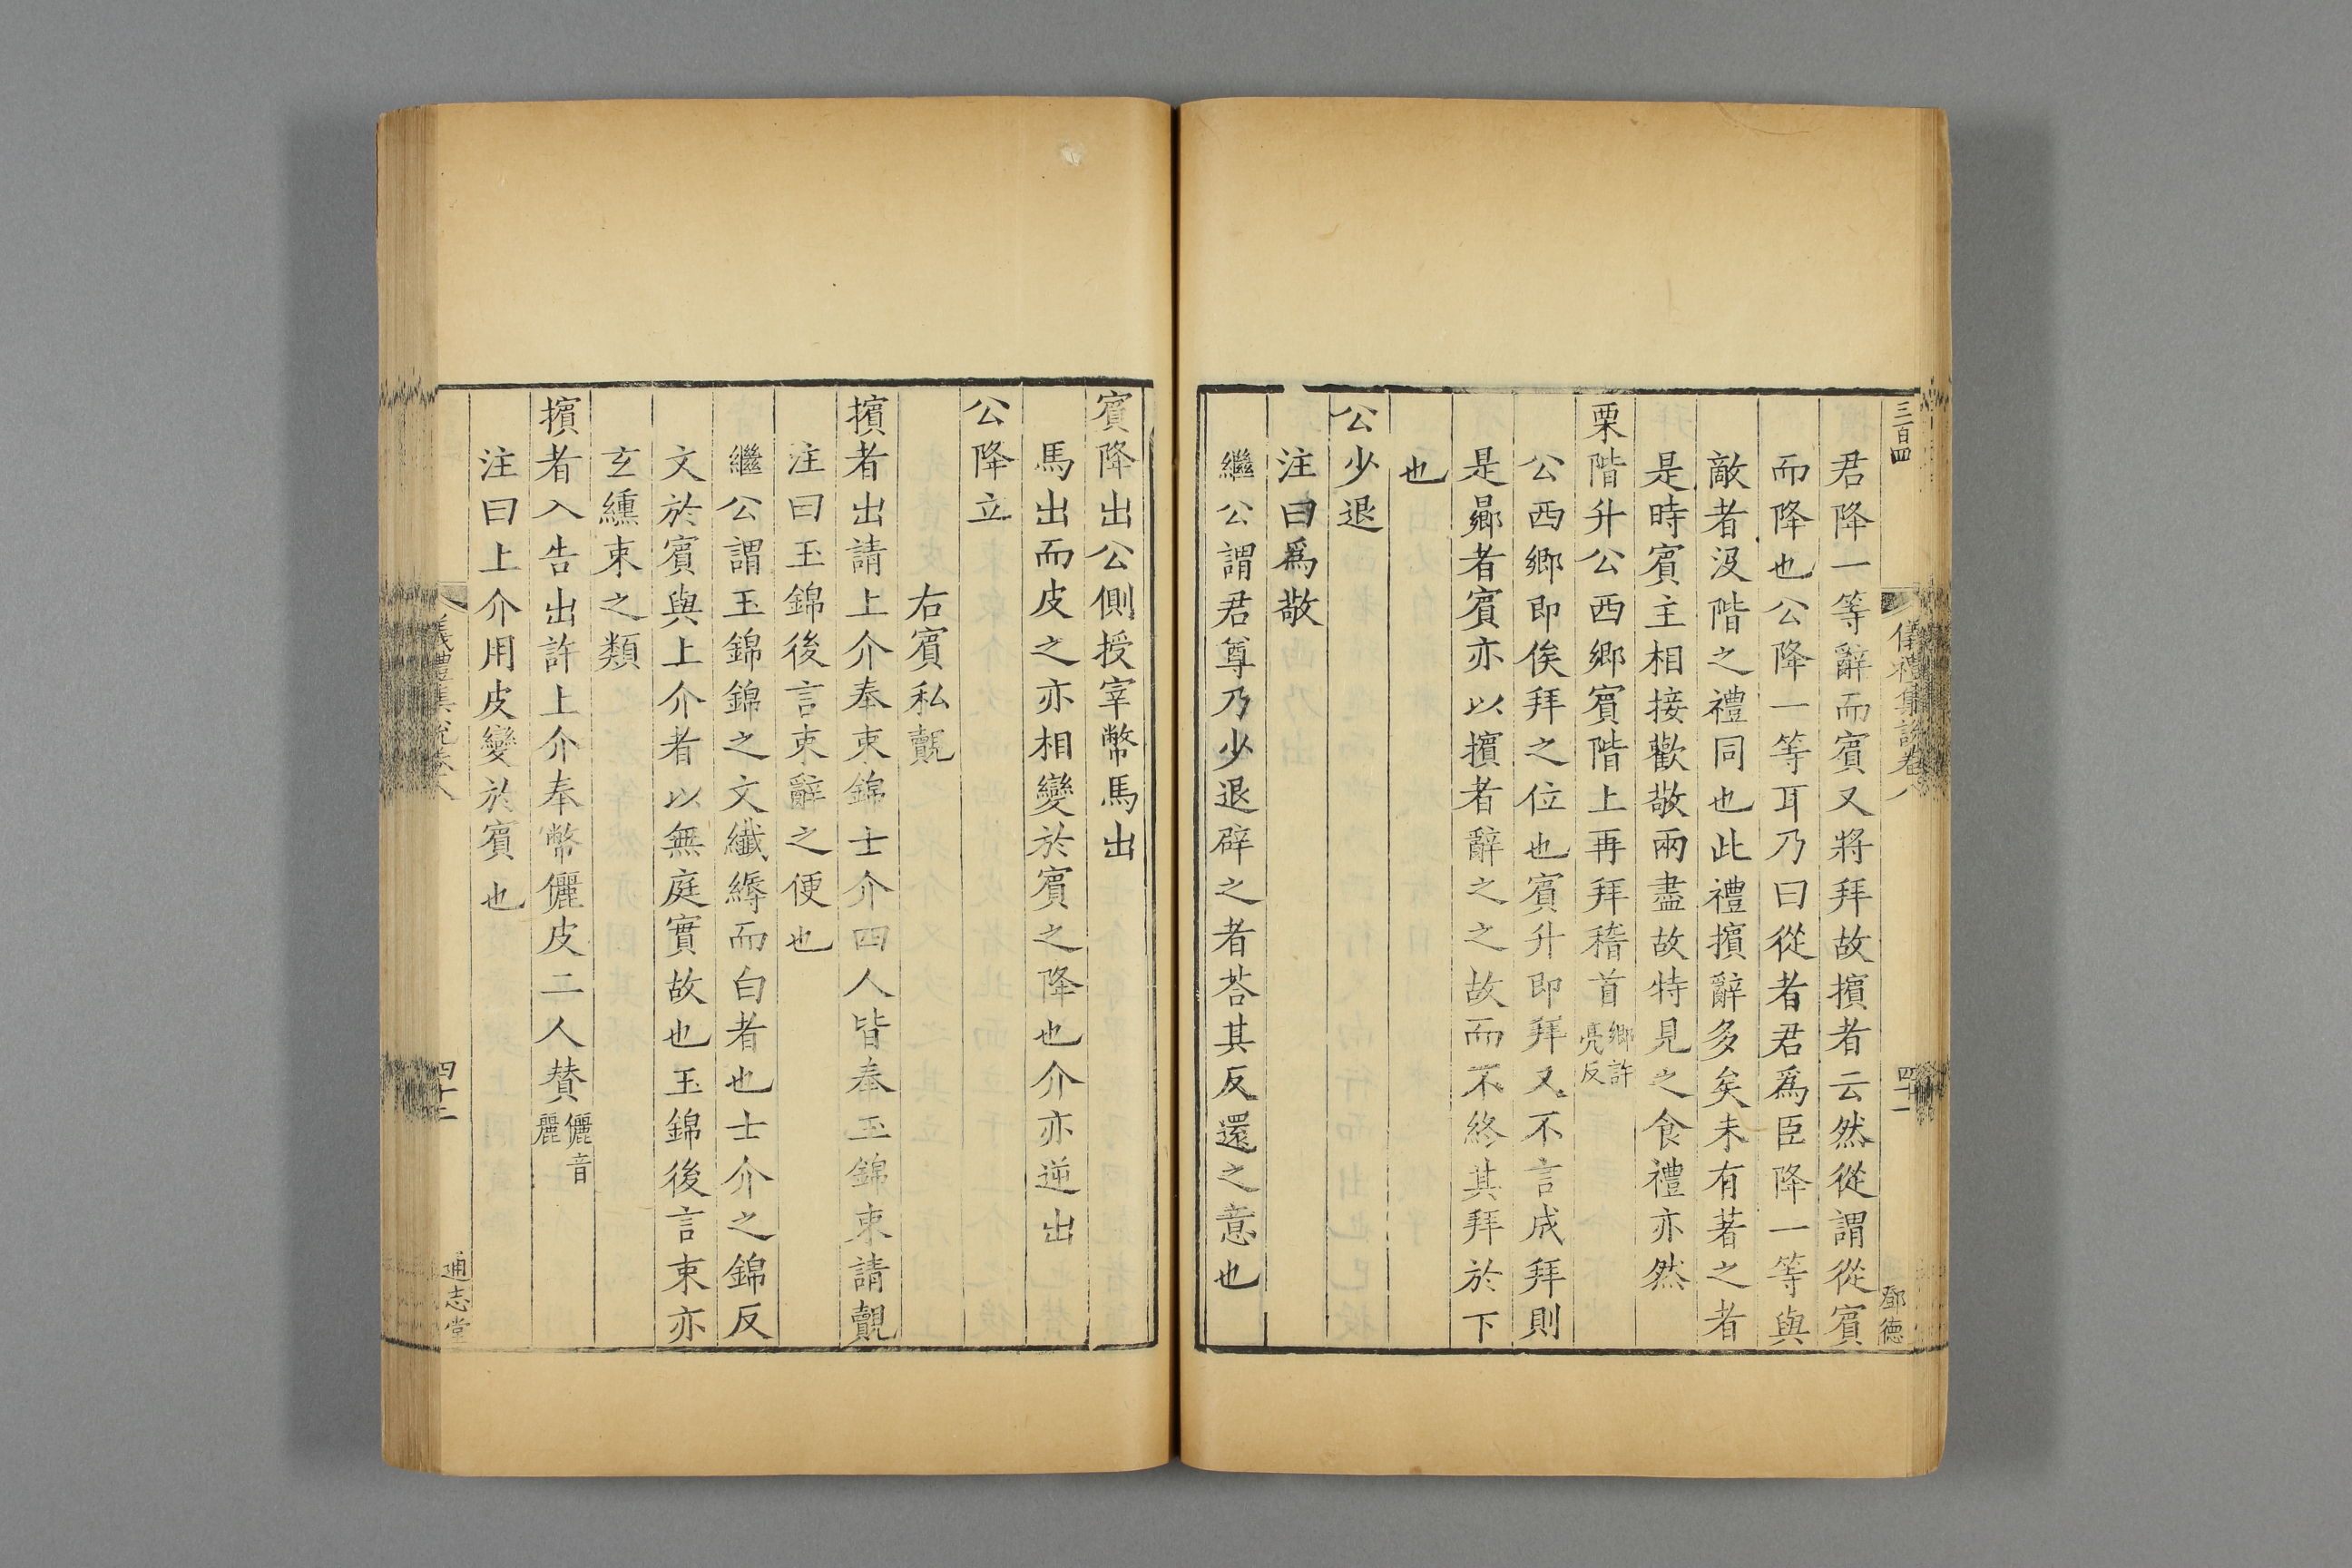 三百四
儀禮集說卷八
四十一
鄧德
君降一等辭而賓又將拜故擯者云然從謂從賓
而降也公降一等耳乃曰從者君爲臣降一等與
敵者沒階之禮同也此禮擯辭多矣未有著之者
是時賓主相接歡敬兩盡故特見之食禮亦然
栗階升公西鄉賓階上再拜稽首鄉許亮反
公西鄉即俟拜之位也賓升即拜又不言成拜則
是曏者賓亦以擯者辭之之故而不終其拜於下
也
公少退
注曰爲敬
繼公謂君尊乃少退辟之者荅其反還之意也
賓降出公側授宰幣馬出
馬出而皮之亦相變於賓之降也介亦逆出
公降立
右賓私覿
擯者出請上介奉束錦士介四人皆奉玉錦束請覿
注曰玉錦後言束辭之便也
繼公謂玉錦錦之文纖縟而白者也士介之錦反
文於賓與上介者以無庭實故也玉錦後言束亦
玄纁束之類
擯者入告出許上介奉幣儷皮二人贊儷音麗
注曰上介用皮變於賓也
儀禮集說卷八
四十二
通志堂